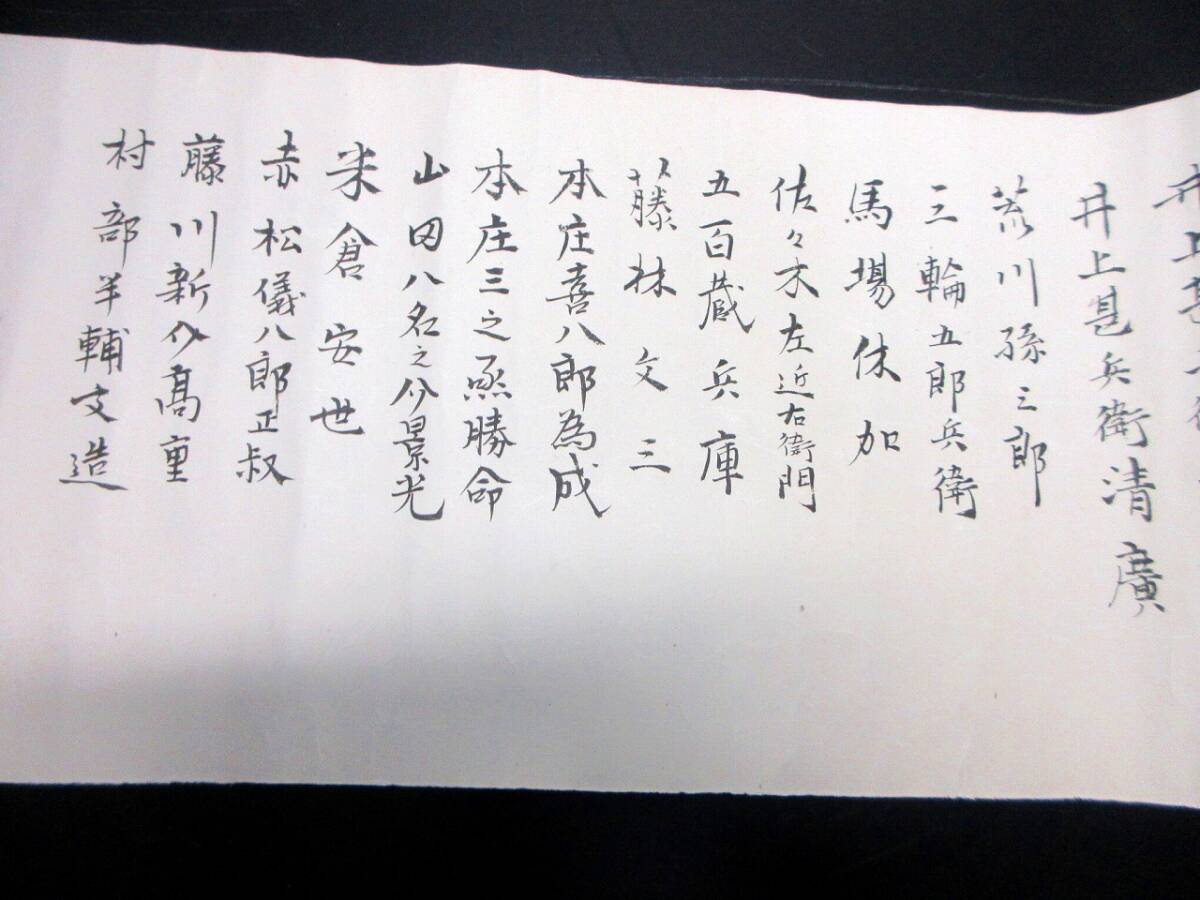 井上甚
井上甚兵衛清廣
荒川孫三郎
三輪五郎兵衛
馬場休加
佐々木左近右衛門
五百蔵兵庫
藤林文三
本庄喜八郎為成
本庄三之丞勝命
山田八名之介景光
米倉安世
赤松儀八郎正叔
藤川新介高重
村部半輔文造